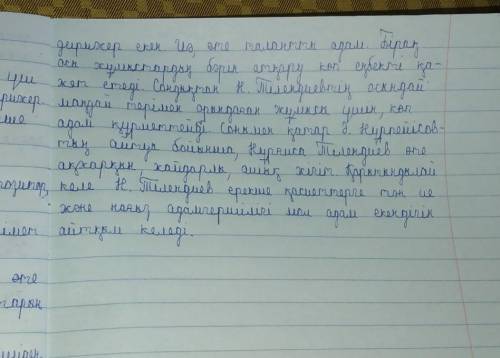 дирижер екен Иә, өте талантты адам. Бірақ
осы жұмыстардың бәрін атқару көп еңбекті қа-
үш
жет етеді Сондықтан Н. Тілендиевтің осындай
маңдай терімен орындаған жұмысы үшін, көп
адам құрметтейді Сонымен қатар Ә. Нұрпейісов-
тың айтуы бойынша, Нұрғиса Тілендиев өте
ақжарқын, жайдарлы, ашық жігіт Қорытындылай
келе Н. Тілендиев ерекше қасиеттерге тән ие
позитор,
және нағыз адамгершілігі мол адам екендігін
айтқым келеді.
өте